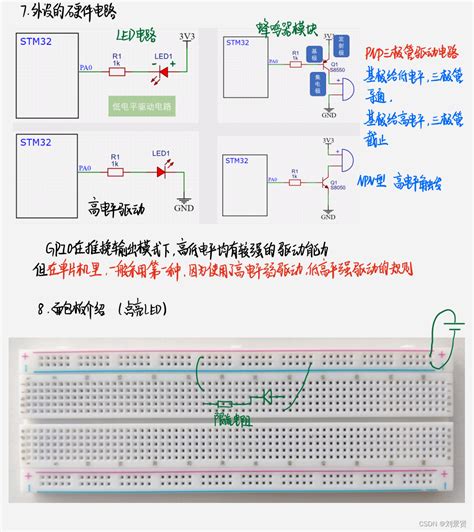 7.外设的硬件电路
LED电路
蜂鸣器模块
STM32
PA0
R1
1k
LED1
3V3
低电平驱动电路
STM32
PA0
R1
1k
3V3
发射极
基极
集电极
Q1
S8550
GND
PNP三极管驱动电路
基极给低电平,三极管
导通,
基极给高电平,三极管
截止
STM32
PA0
R1
1k
LED1
GND
高电平驱动
STM32
PA0
R1
1k
3V3
Q1
S8050
GND
NPN型 高电平
GPIO在推挽输出模式下,高低电平均有较强的驱动能力
但在单片机里,一般采用第一种,因为使用了高电平弱驱动,低电平强驱动的规则
8.面包板介绍 (点亮LED)
限流电阻
CSDN @刘景贤